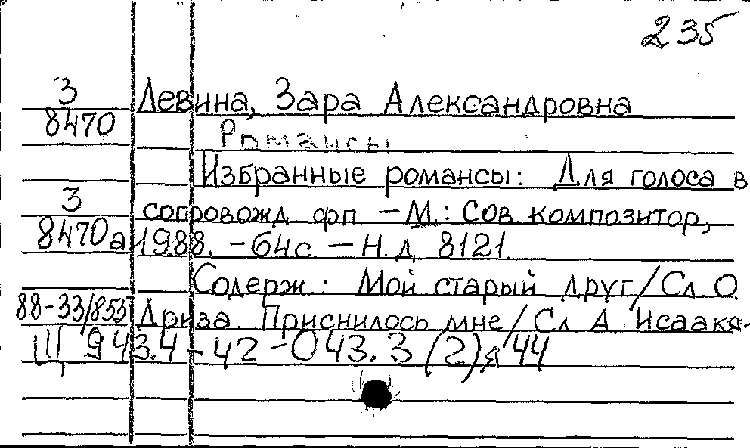 235
З Левина, Зара Александровна
8470 Романсы
Избранные романсы: Для голоса в
З сопровожд. фп. – М.: Сов. композитор,
8470а 1988. – 64с. – Н.д. 8121.
Содерж.: Мой старый друг/Сл. О.
88-33/853 Дриза. Приснилось мне/Сл. А. Исаакя-
Щ 943.4-42-043.3(2)я44